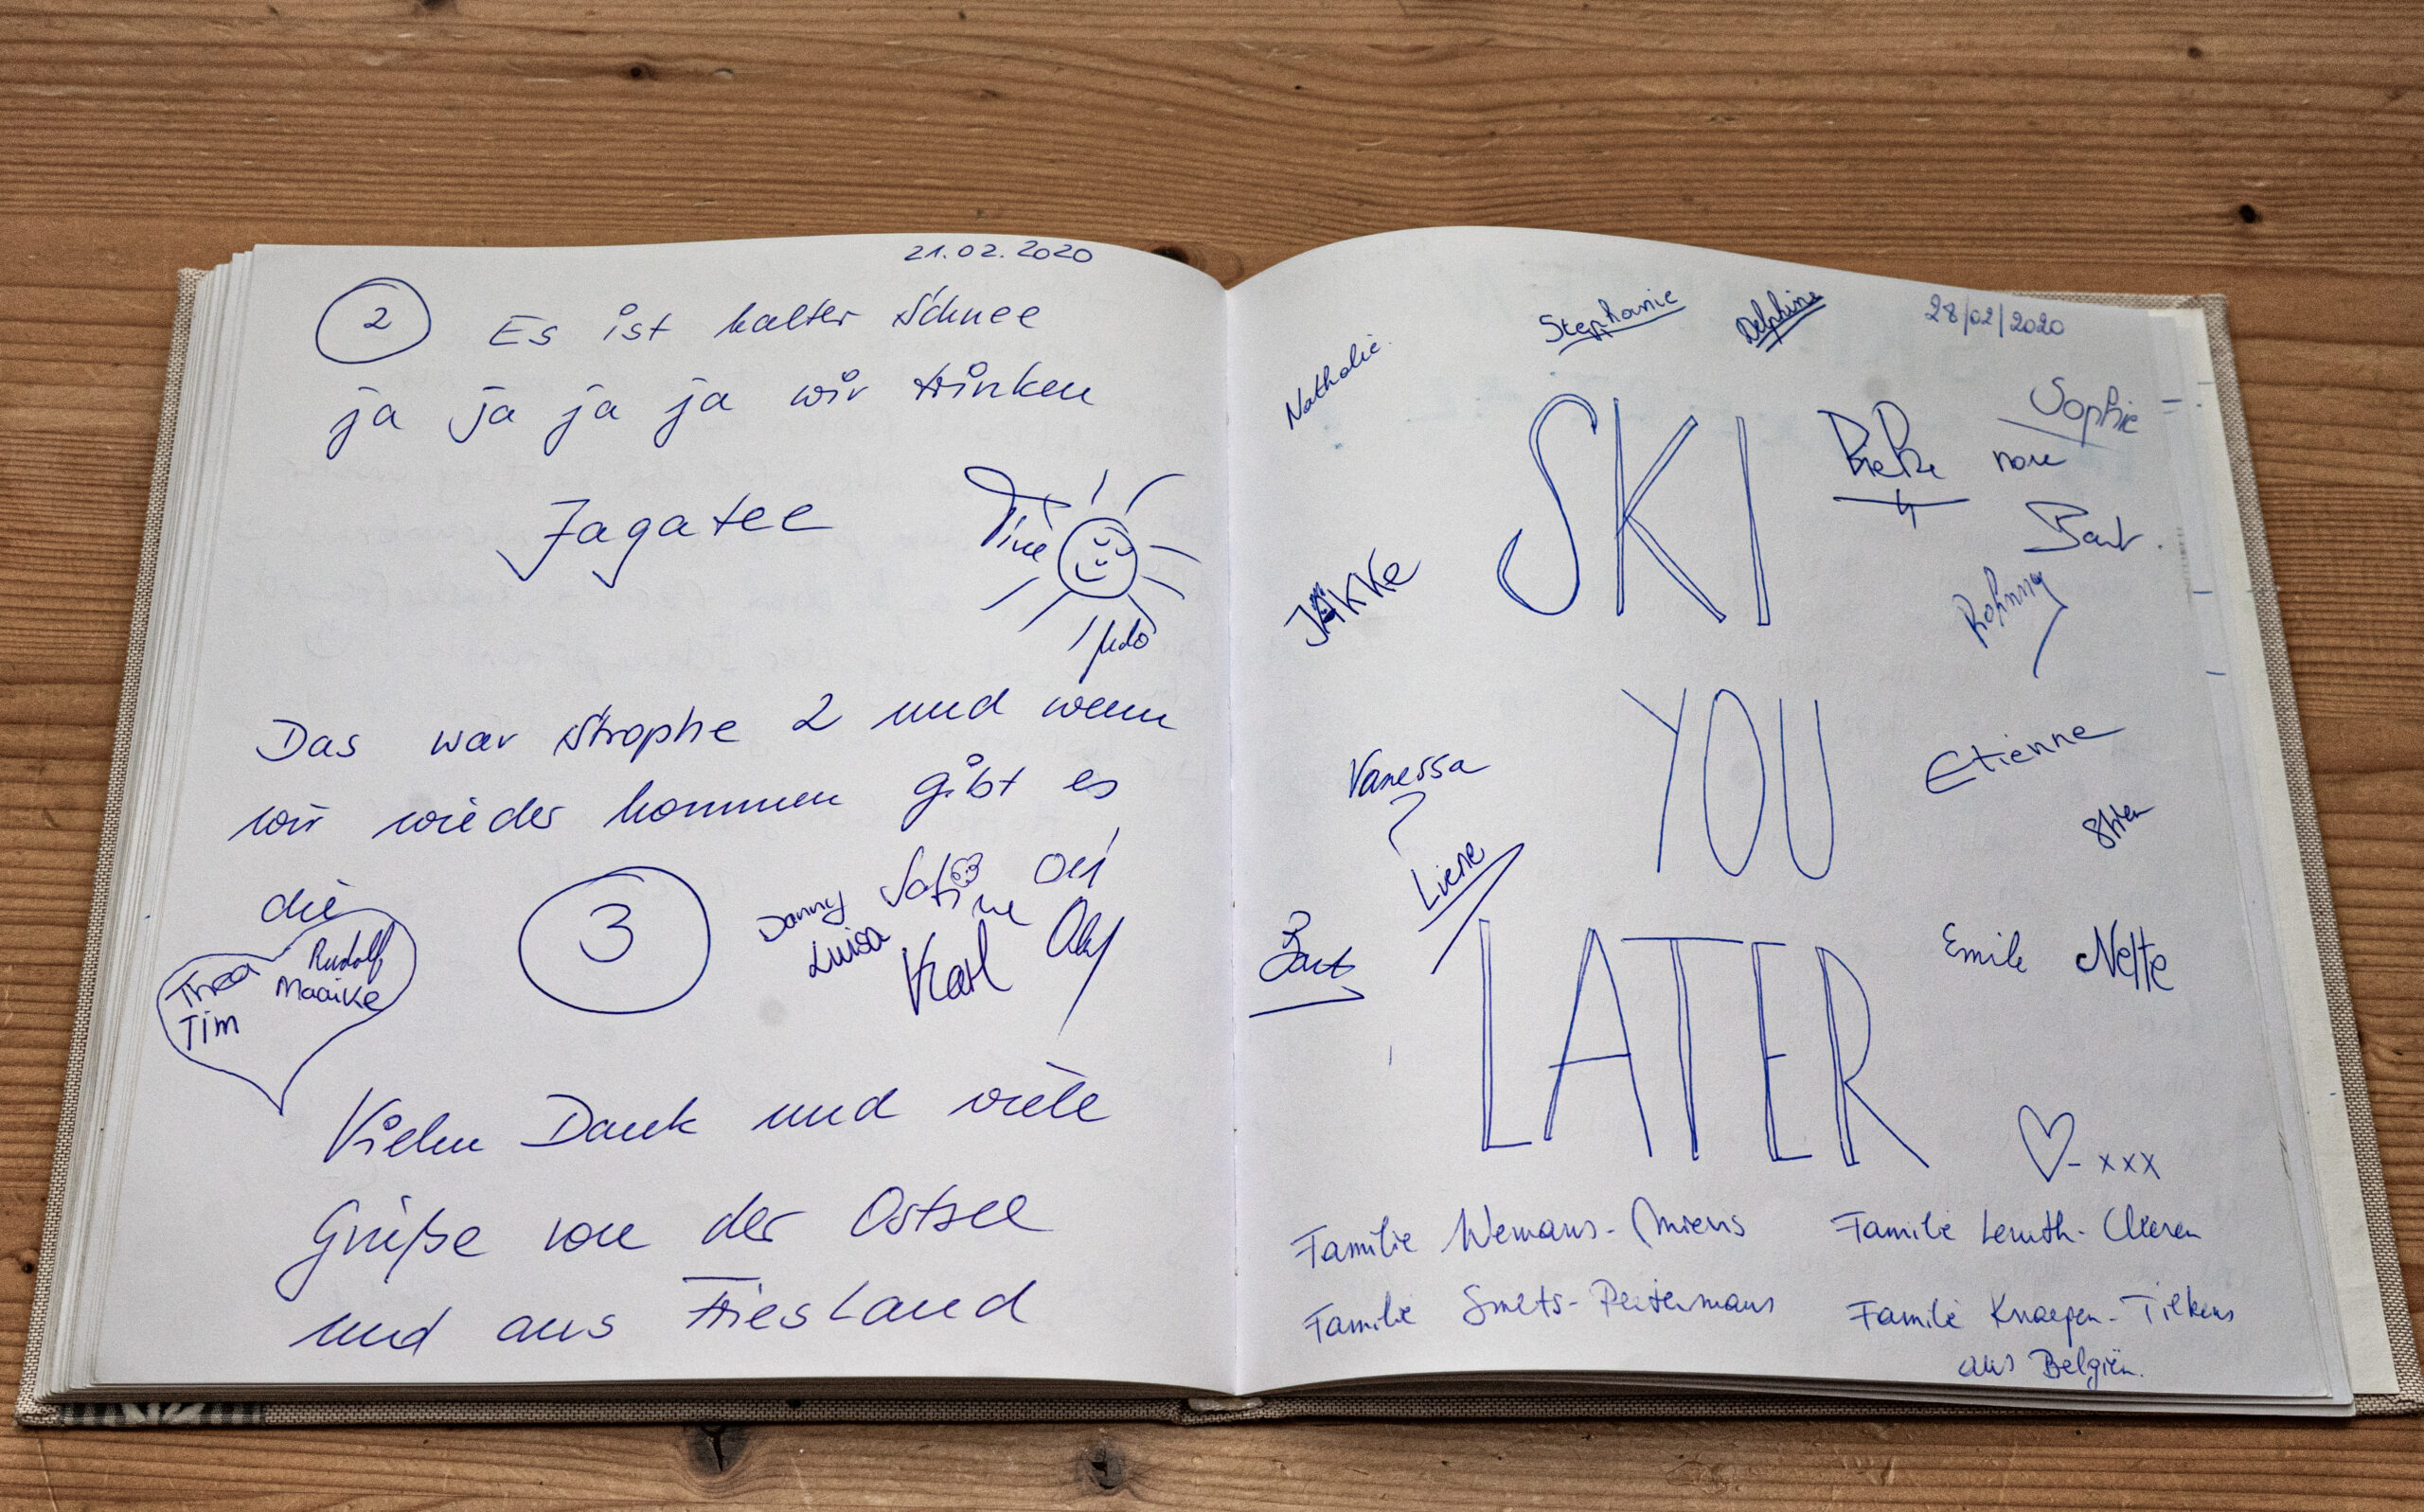 21.02.2020
2 Es ist kalter Schnee
ja ja ja ja wir trinken
Jagatee
Tine
Udo
Das war Strophe 2 und wenn
wir wieder kommen gibt es
die
3
Danny
Luisa
Karl
Thea Rudolf
Maaike
Tim
Vielen Dank und viele
Grüße von der Ostsee
und aus Friesland
28/02/2020
Stephanie Delphine
Nathalie
Sophie
SKI
Bart
JAKKe
YOU
Vanessa
Etienne
Liene
LATER
Bart
Emile Nette
xxx
Familie Wemans- Familie
Familie Smets-Peetermans Familie Knaepen-Tilkens
aus Belgien.